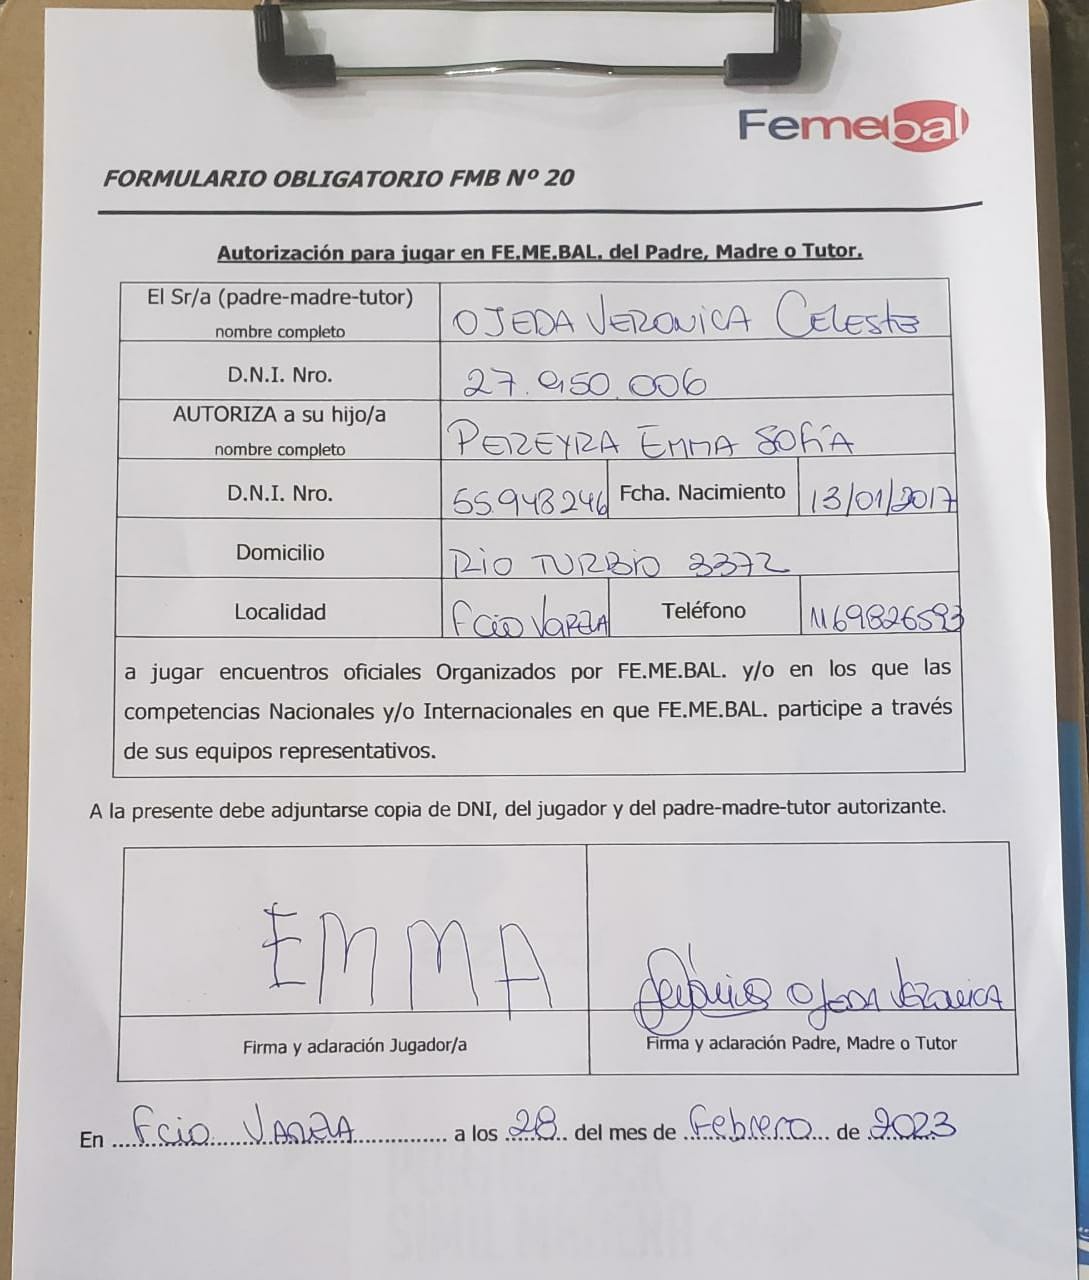 Femebal
FORMULARIO OBLIGATORIO FMB Nº 20
Autorización para jugar en FE.ME.BAL. del Padre, Madre o Tutor.
El Sr/a (padre-madre-tutor)
nombre completo
OJEDA VERONICA CELESTE
D.N.I. Nro.
27.950.006
AUTORIZA a su hijo/a
nombre completo
PEREYRA EMMA SOFÍA
D.N.I. Nro.
55.948246
Fcha. Nacimiento
13/01/2017
Domicilio
RIO TURBIO 3372
Localidad
Fcio VARELA
Teléfono
1169826593
a jugar encuentros oficiales Organizados por FE.ME.BAL. y/o en los que las
competencias Nacionales y/o Internacionales en que FE.ME.BAL. participe a través
de sus equipos representativos.
A la presente debe adjuntarse copia de DNI, del jugador y del padre-madre-tutor autorizante.
EMMA
OJEDA VERONICA
Firma y aclaración Jugador/a
Firma y aclaración Padre, Madre o Tutor
En Fcio VARELA a los 28 del mes de Febrero de 2023